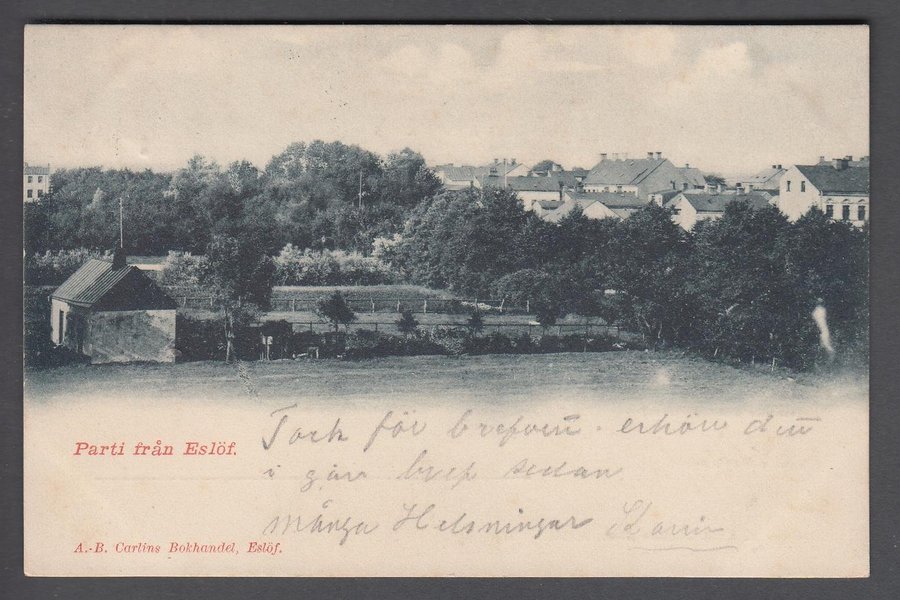 Parti från Eslöf.
Tack för brefven. erhöll
i går bref sedan
många Helsningar
A.-B. Carlins Bokhandel, Eslöf.